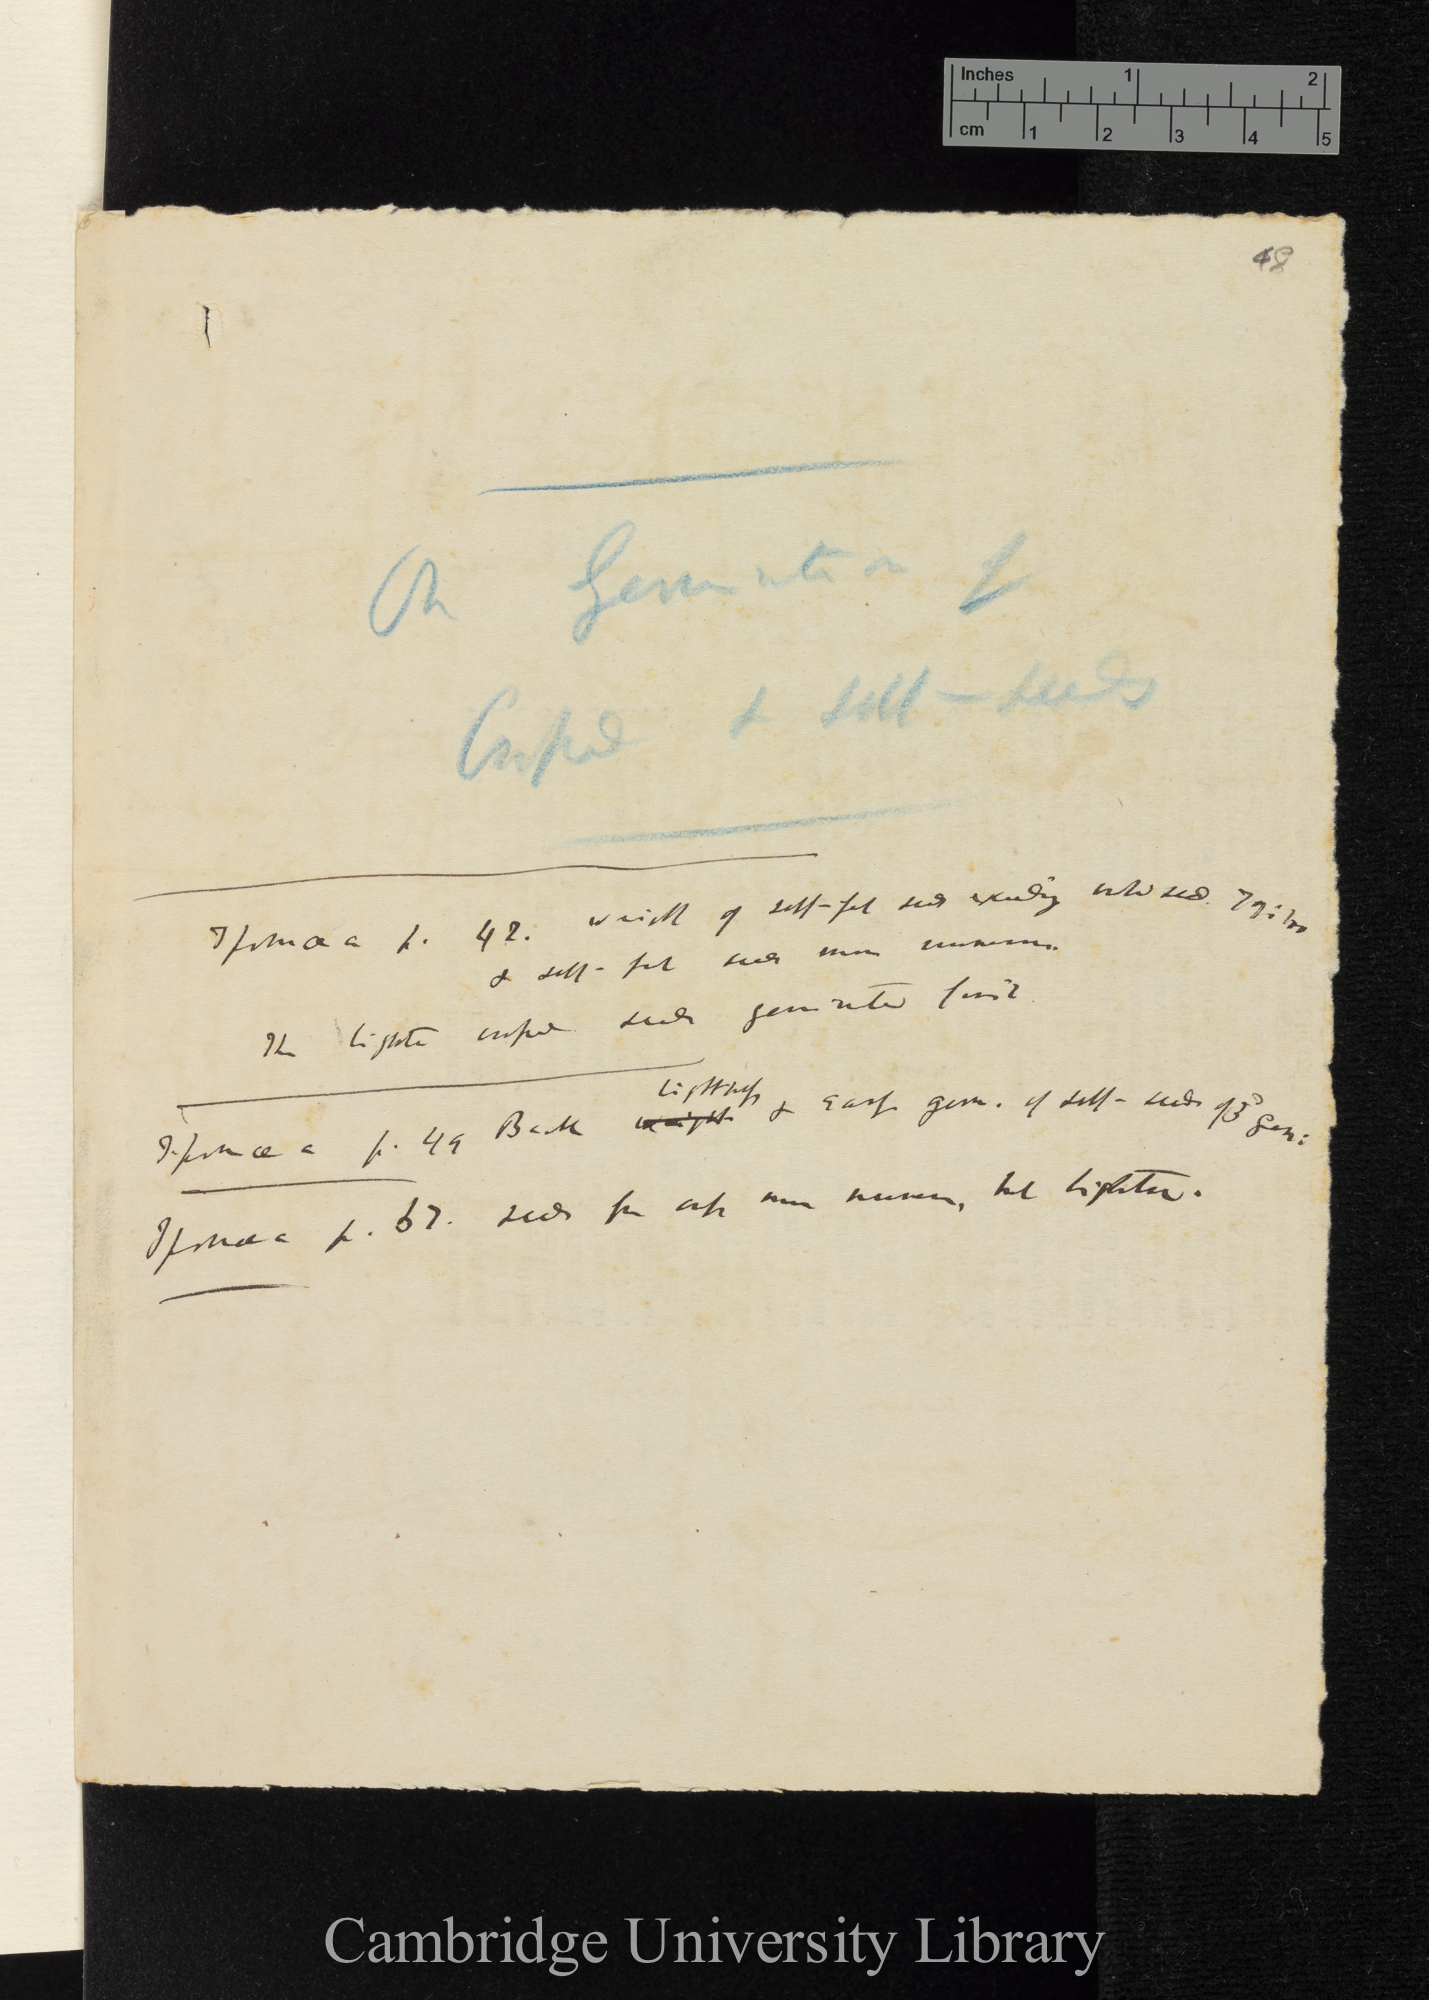 Inches 1 2
cm 1 2 3 4 5
48
On Germination of
Crossed & self-seeds
Ipomœa p. 42. weight of self-fert seeds exceeding crossed seed.
& self-fert seeds more numerous
The lighter crossed seeds germinated first
lightness
Ipomœa p. 49 Back weight & early germ. of self-seeds of 3d gen:
Ipomœa p. 67. seeds from cross more numerous, but lighter.
Cambridge University Library